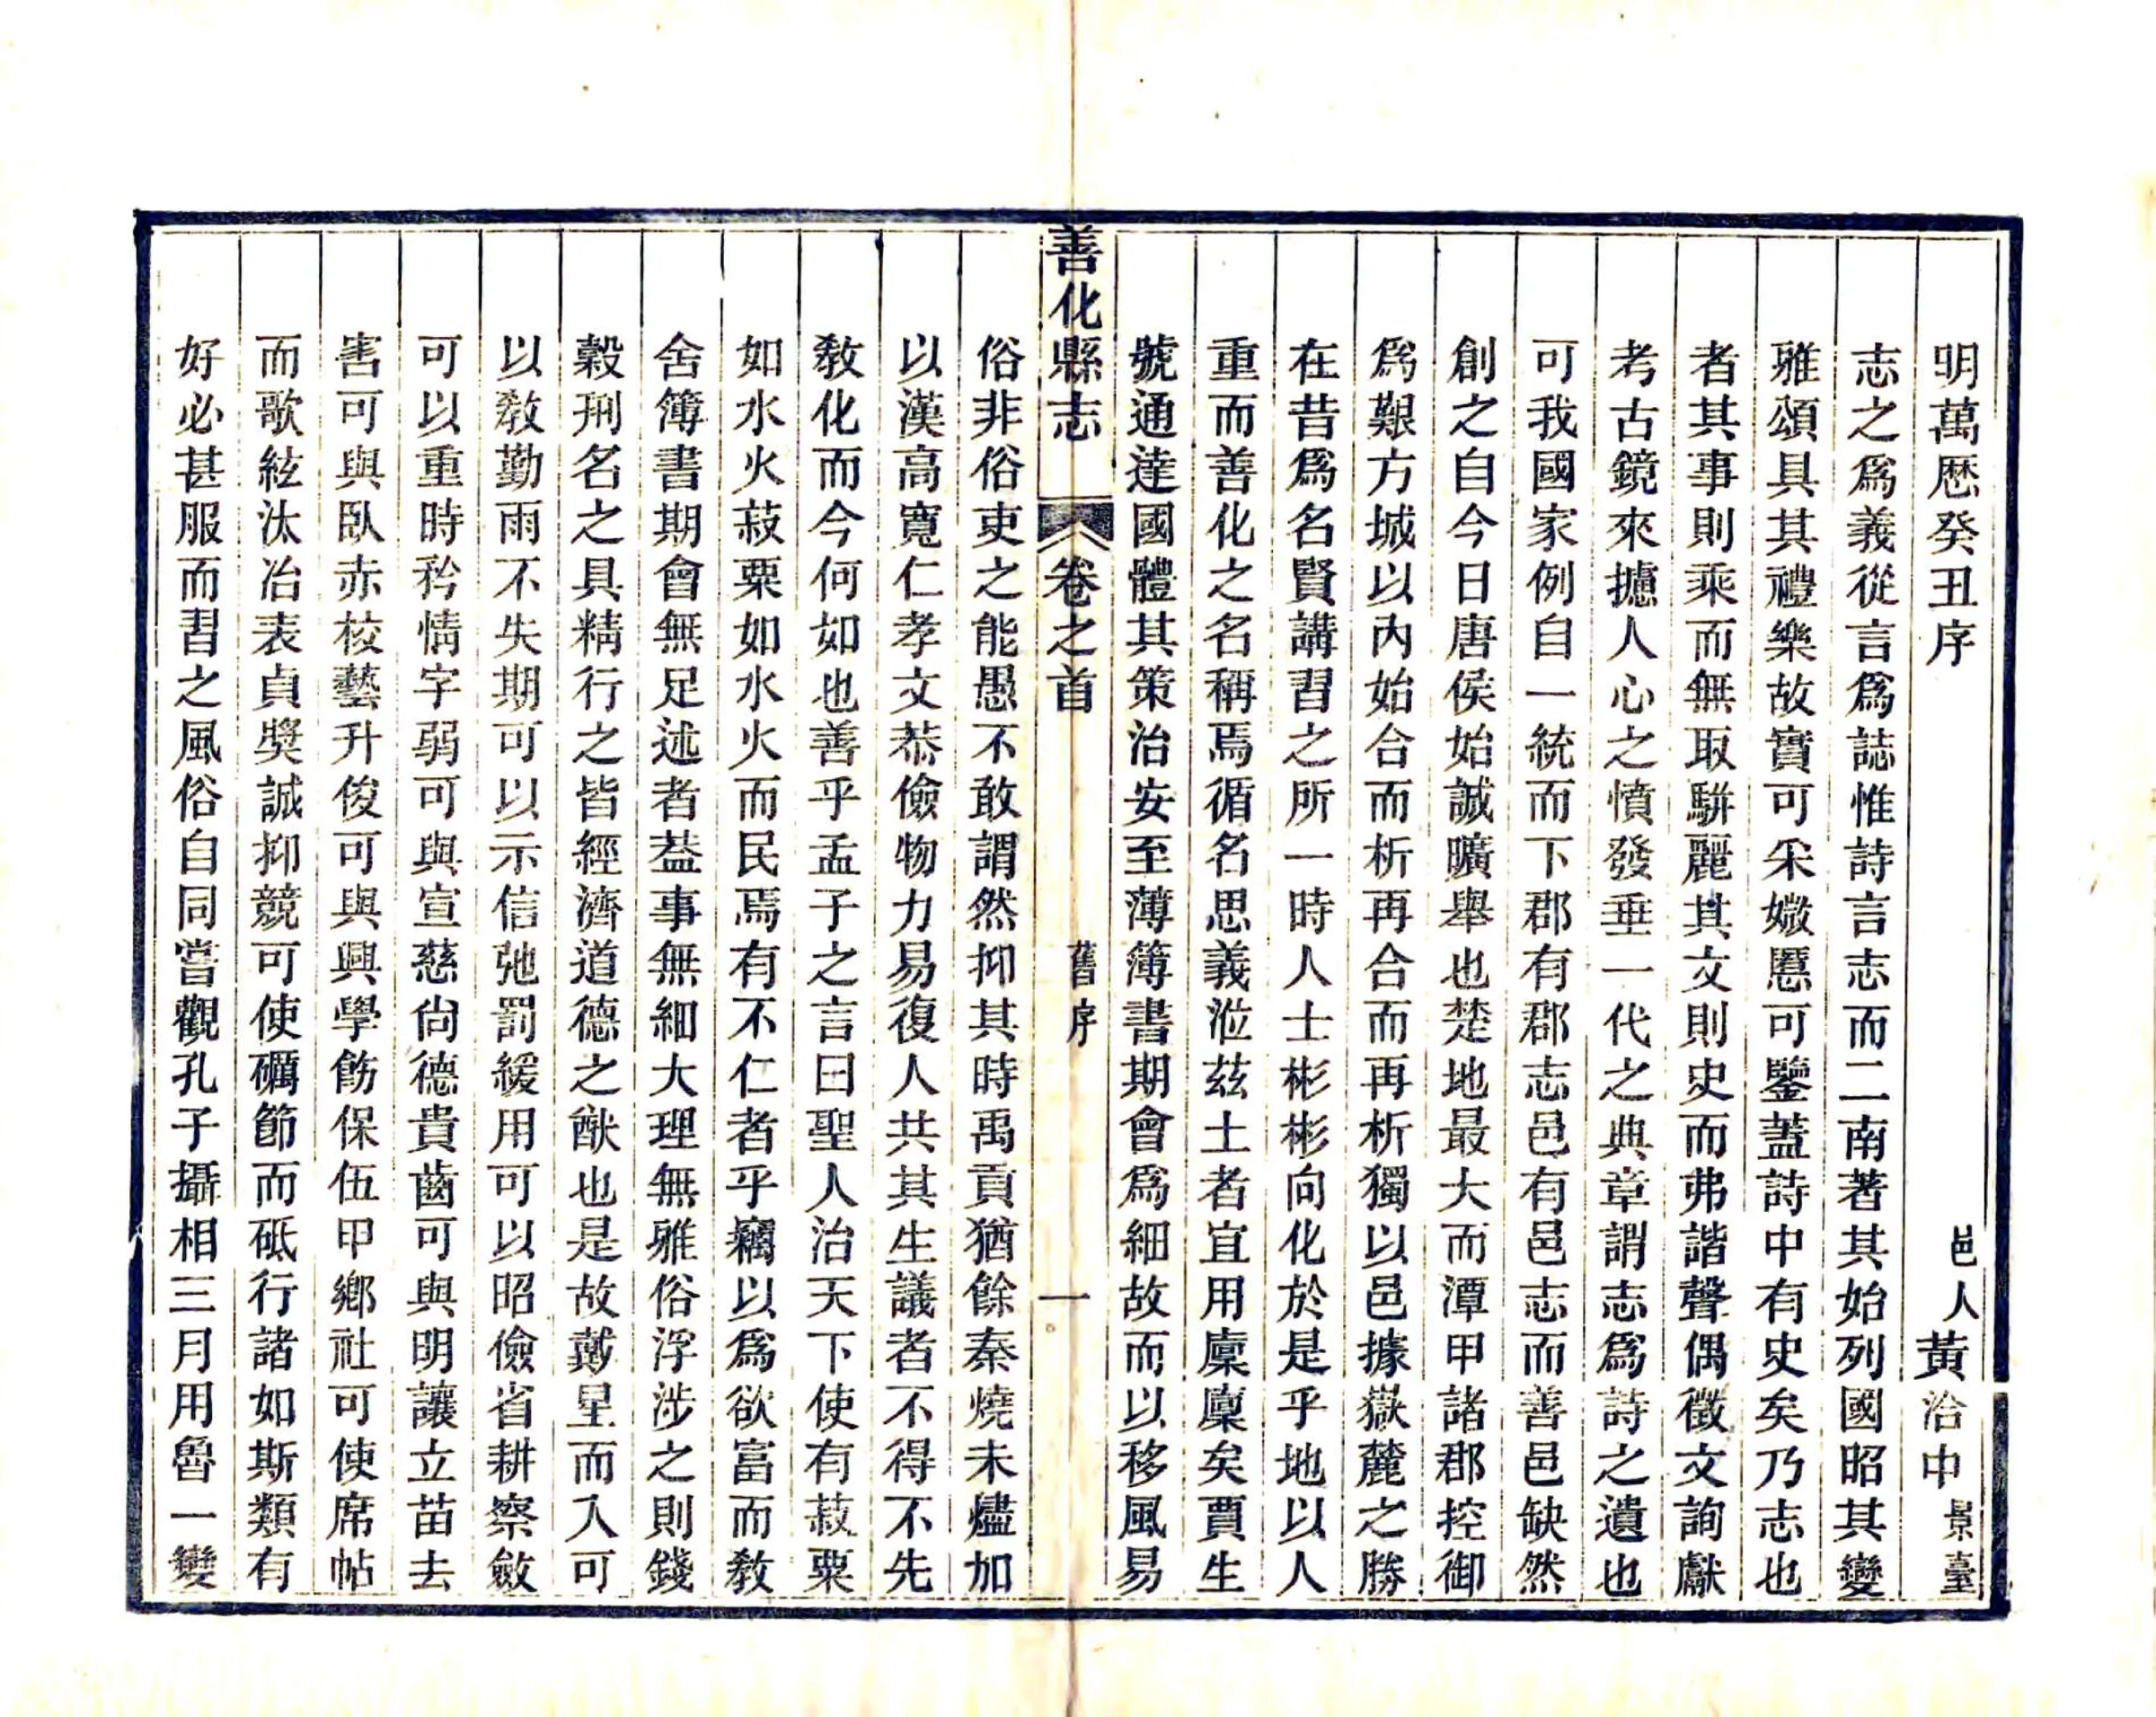 明萬歷癸丑序 邑人黃洽中景臺
志之爲義從言爲誌惟詩言志而二南著其始列國昭其變
雅頌具其禮樂故實可采媺慝可鑒蓋詩中有史矣乃志也
者其事則乘而無取駢麗其文則史而弗諧聲偶徵文詢獻
考古鏡來攄人心之憤發垂一代之典章謂志爲詩之遺也
可我國家例自一統而下郡有郡志邑有邑志而善邑缺然
創之自今日唐侯始誠曠舉也楚地最大而潭甲諸郡控御
爲艱方城以內始合而析再合而再析獨以邑據嶽麓之勝
在昔爲名賢講習之所一時人士彬彬向化於是乎地以人
重而善化之名稱焉循名思義涖茲土者宜用廩廩矣賈生
號通達國體其策治安至薄簿書期會爲細故而以移風易
善化縣志 卷之首 舊序 一
俗非俗吏之能愚不敢謂然抑其時禹貢猶餘秦燒未燼加
以漢高寬仁孝文恭儉物力易復人共其生議者不得不先
敎化而今何如也善乎孟子之言曰聖人治天下使有菽粟
如水火菽粟如水火而民焉有不仁者乎竊以爲欲富而敎
舍簿書期會無足述者葢事無細大理無雅俗浮涉之則錢
穀刑名之具精行之皆經濟道德之猷也是故戴星而入可
以敎勤雨不失期可以示信弛罰緩用可以昭儉省耕察斂
可以重時矜情字弱可與宣慈尙德貴齒可與明讓立苗去
害可與臥赤校藝升俊可與興學飭保伍甲鄉社可使席帖
而歌絃汰冶表貞奬誠抑競可使礪節而砥行諸如斯類有
好必甚服而習之風俗自同嘗觀孔子攝相三月用魯一變